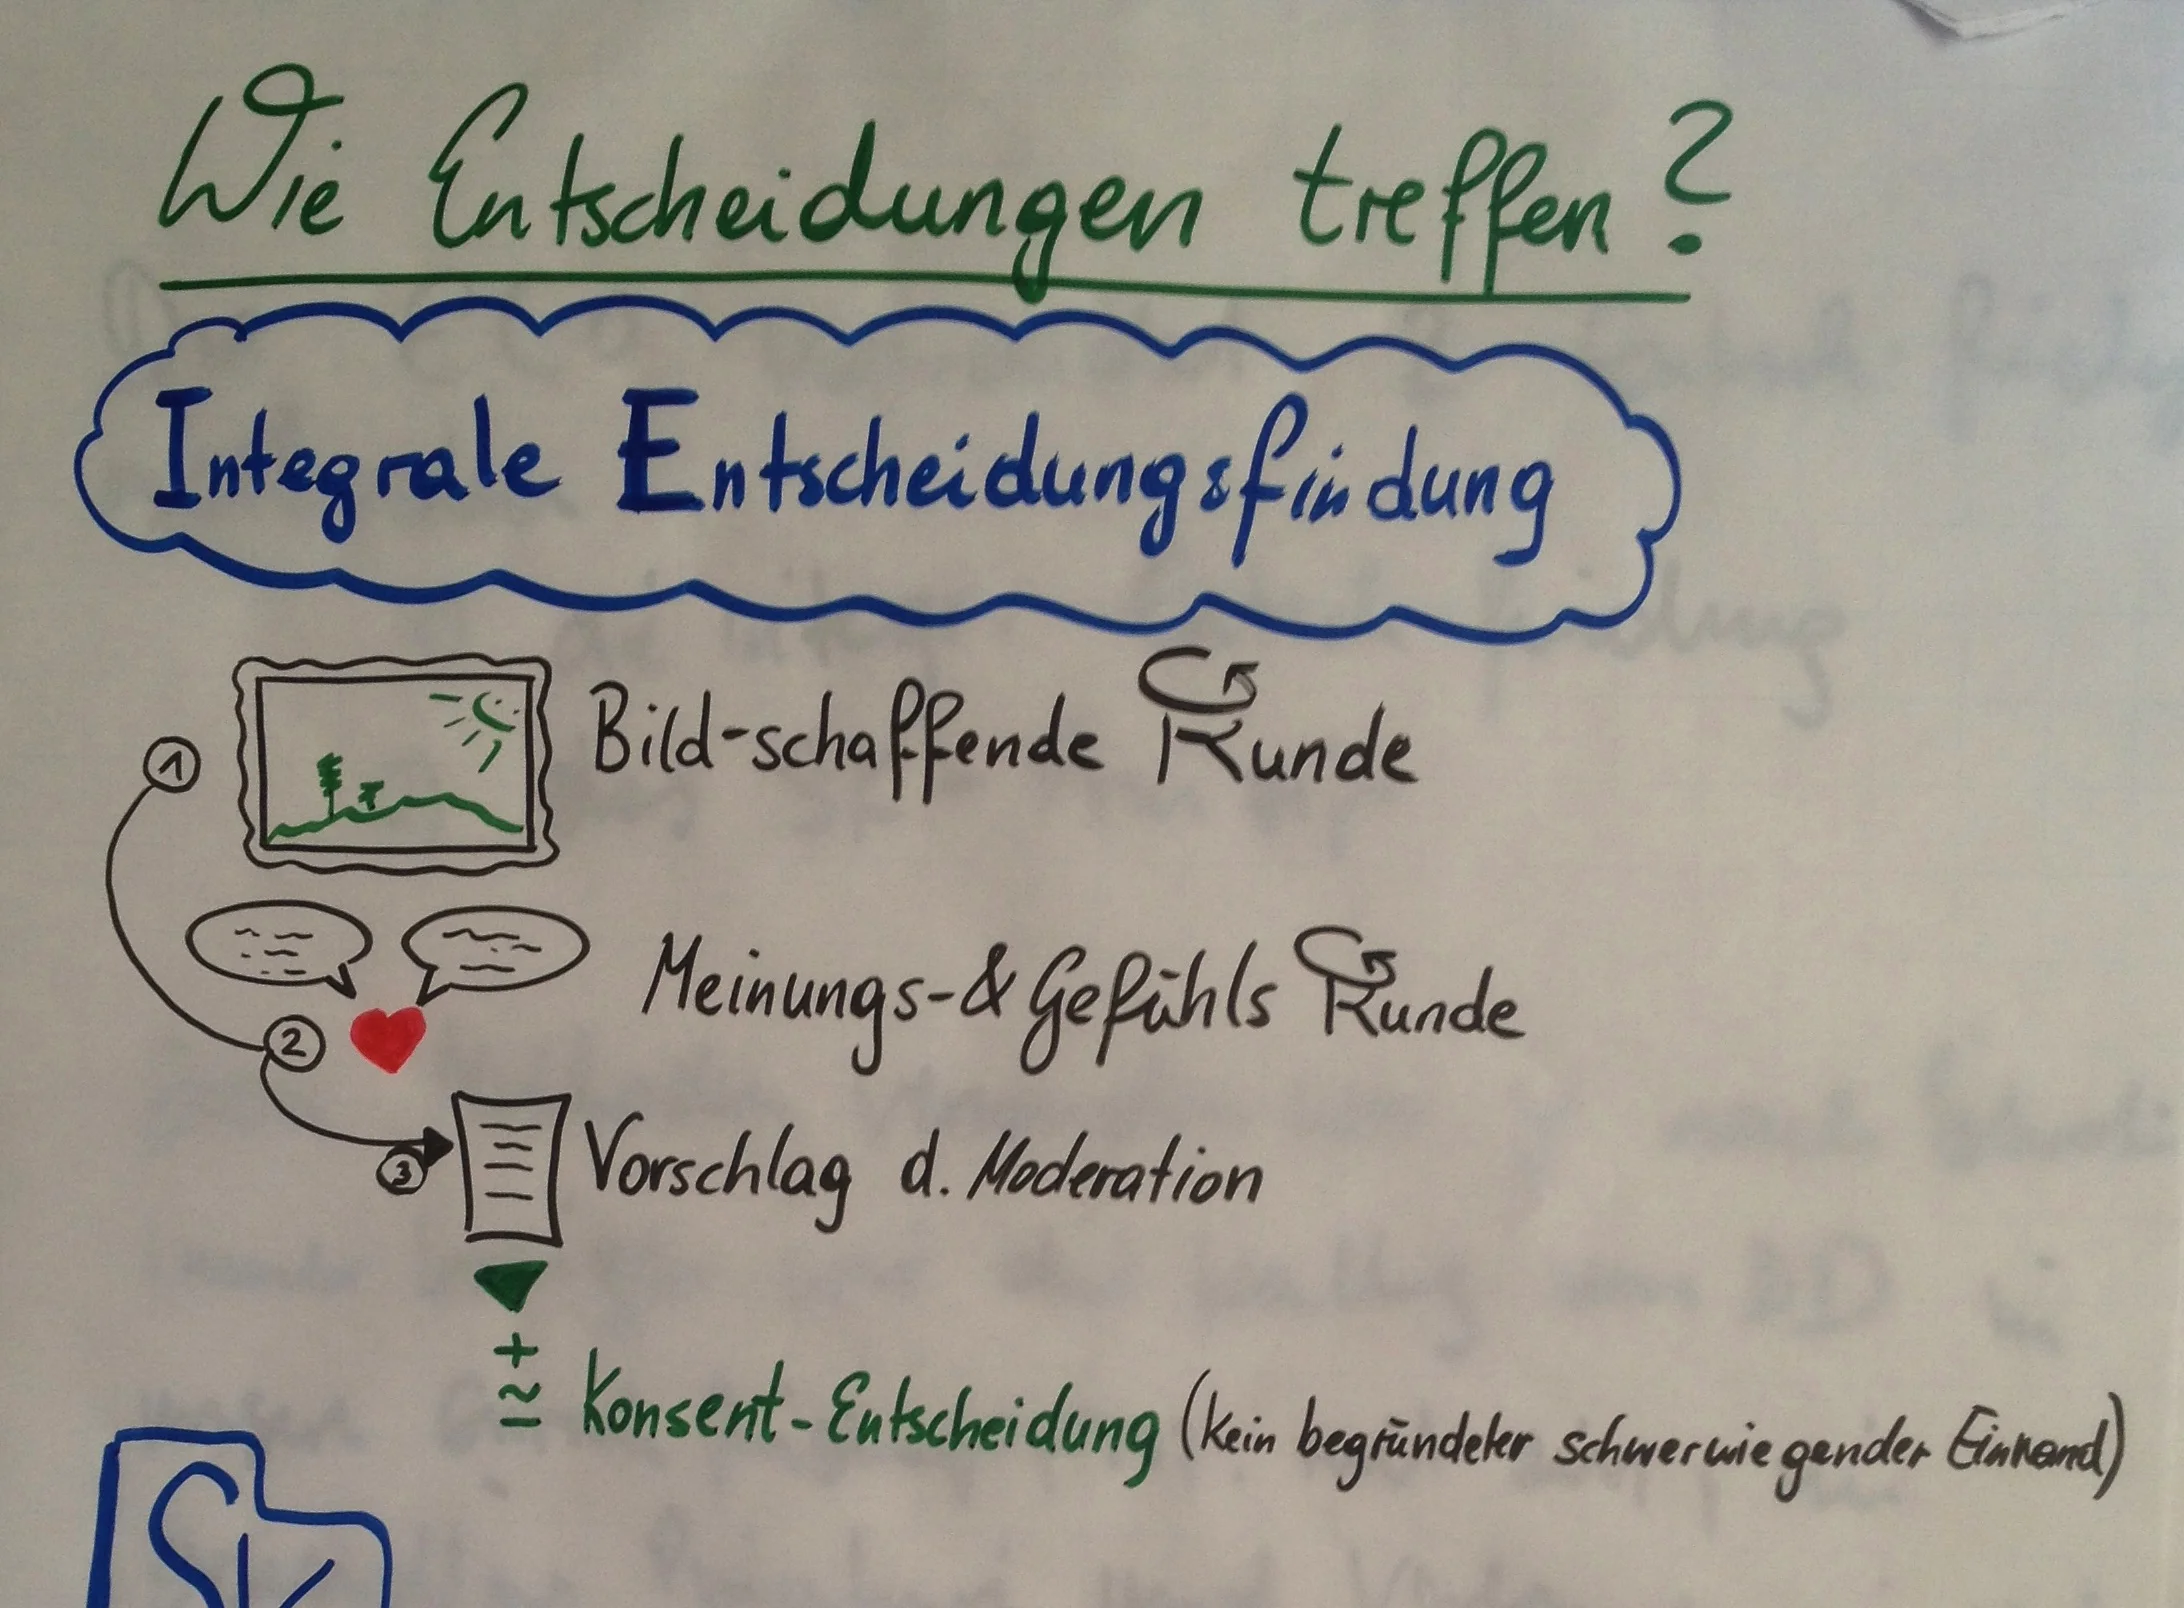 Wie Entscheidungen treffen?
Integrale Entscheidungsfindung
1 Bild-schaffende Runde
2 Meinungs-&Gefühls Runde
3 Vorschlag d. Moderation
+
≃ Konsent-Entscheidung (kein begründeter schwerwiegender Einwand)